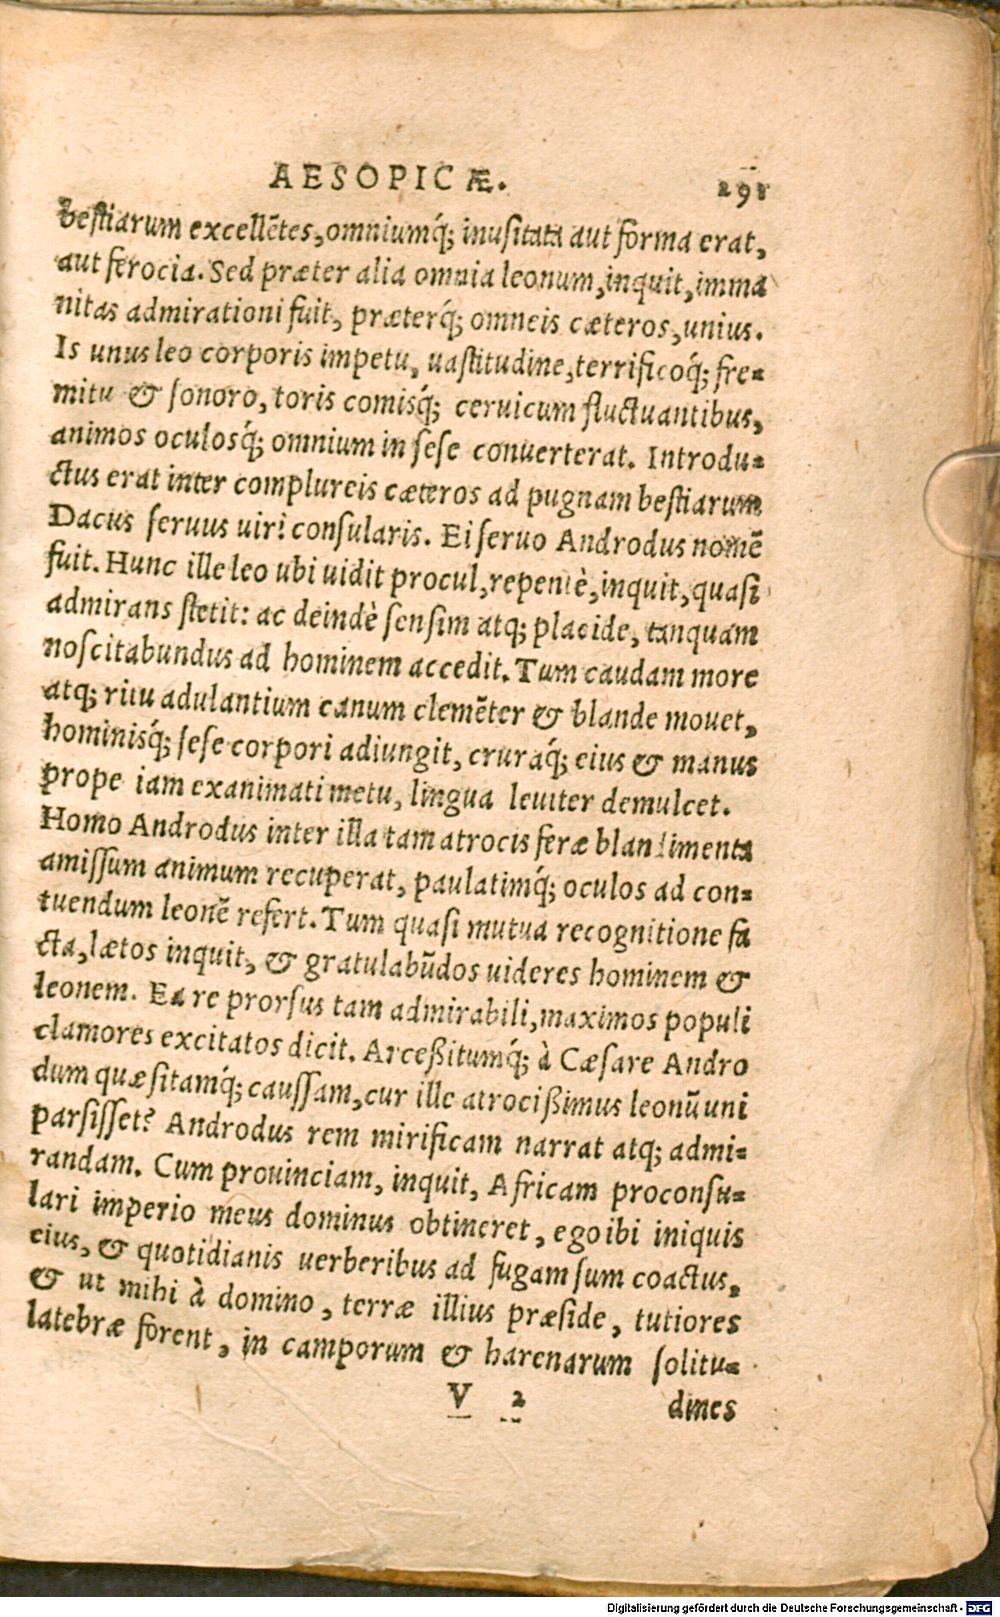 AESOPICÆ. 291
bestiarum excellētes, omniumq́; inusitata aut forma erat,
aut ferocia. Sed præter alia omnia leonum, inquit, imma
nitas admirationi fuit, præterq́; omneis cæteros, unius.
Is unus leo corporis impetu, uastitudine, terrificoq́; fre-
mitu & sonoro, toris comisq́; ceruicum fluctuantibus,
animos oculosq́; omnium in sese conuerterat. Introdu-
ctus erat inter complureis cæteros ad pugnam bestiarum
Dacus seruus uiri consularis. Ei seruo Androdus nomē
fuit. Hunc ille leo ubi uidit procul, repentè, inquit, quasi
admirans stetit: ac deindè sensim atq; placide, tanquam
noscitabundus ad hominem accedit. Tum caudam more
atq; ritu adulantium canum clemēter & blande mouet,
hominisq́; sese corpori adiungit, cruraq́; eius & manus
prope iam exanimati metu, lingua leuiter demulcet.
Homo Androdus inter illa tam atrocis feræ blandimenta
amissum animum recuperat, paulatimq́; oculos ad con-
tuendum leonē refert. Tum quasi mutua recognitione fa
cta, lætos inquit, & gratulabūdos uideres hominem &
leonem. Ea re prorsus tam admirabili, maximos populi
clamores excitatos dicit. Arceßitumq́; à Cæsare Andro
dum quæsitamq́; caussam, cur ille atrocißimus leonū uni
parsisset? Androdus rem mirificam narrat atq; admi-
randam. Cum prouinciam, inquit, Africam proconsu-
lari imperio meus dominus obtineret, ego ibi iniquis
eius, & quotidianis uerberibus ad fugam sum coactus,
& ut mihi à domino, terræ illius præside, tutiores
latebræ forent, in camporum & harenarum solitu-
V 2 dines
Digitalisierung gefördert durch die Deutsche Forschungsgemeinschaft - DFG